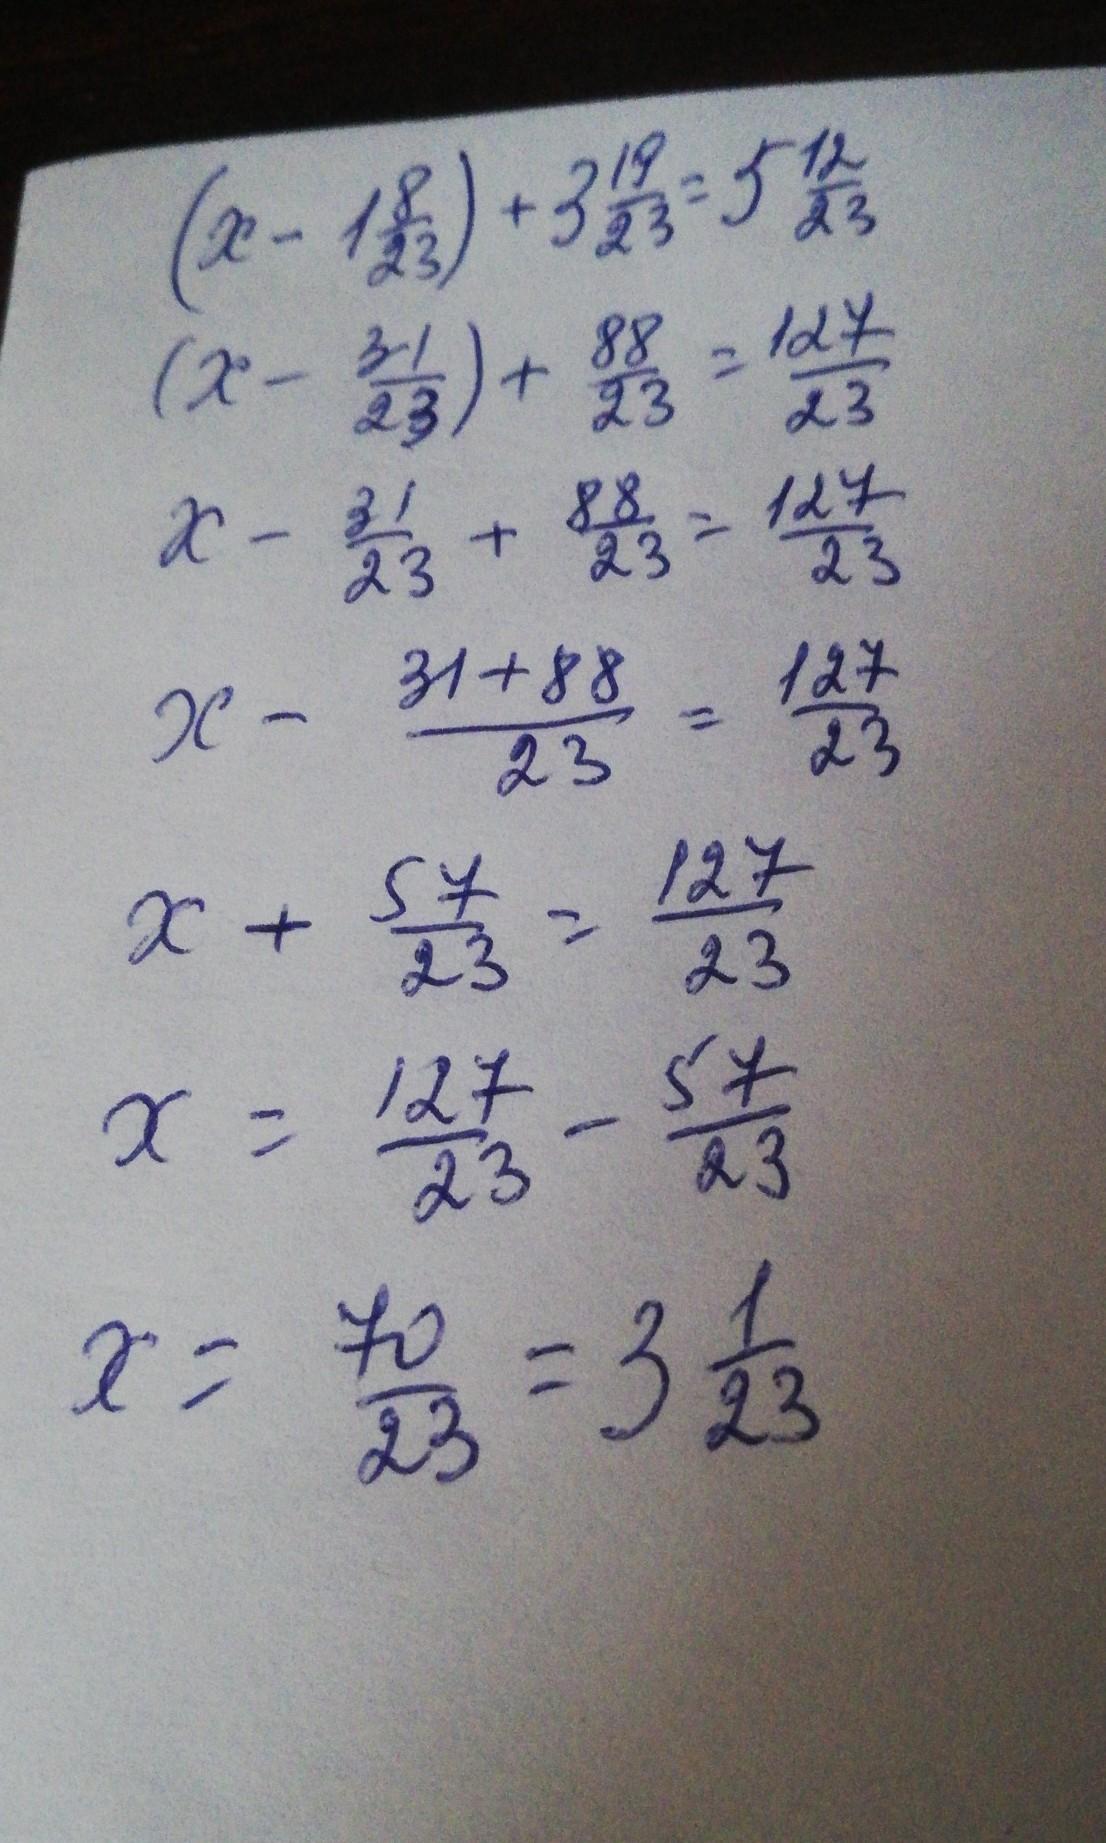 (x - 1 8/23) + 3 19/23 = 5 12/23
(x - 31/23) + 88/23 = 127/23
x - 31/23 + 88/23 = 127/23
x - (31+88)/23 = 127/23
x + 57/23 = 127/23
x = 127/23 - 57/23
x = 70/23 = 3 1/23